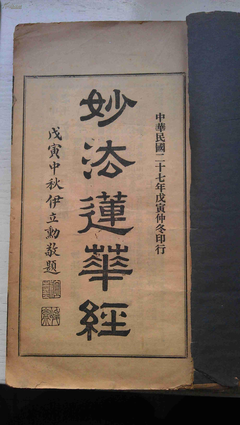 中華民國二十七年戊寅仲冬印行
妙法蓮華經
戊寅中秋伊立勳敬題